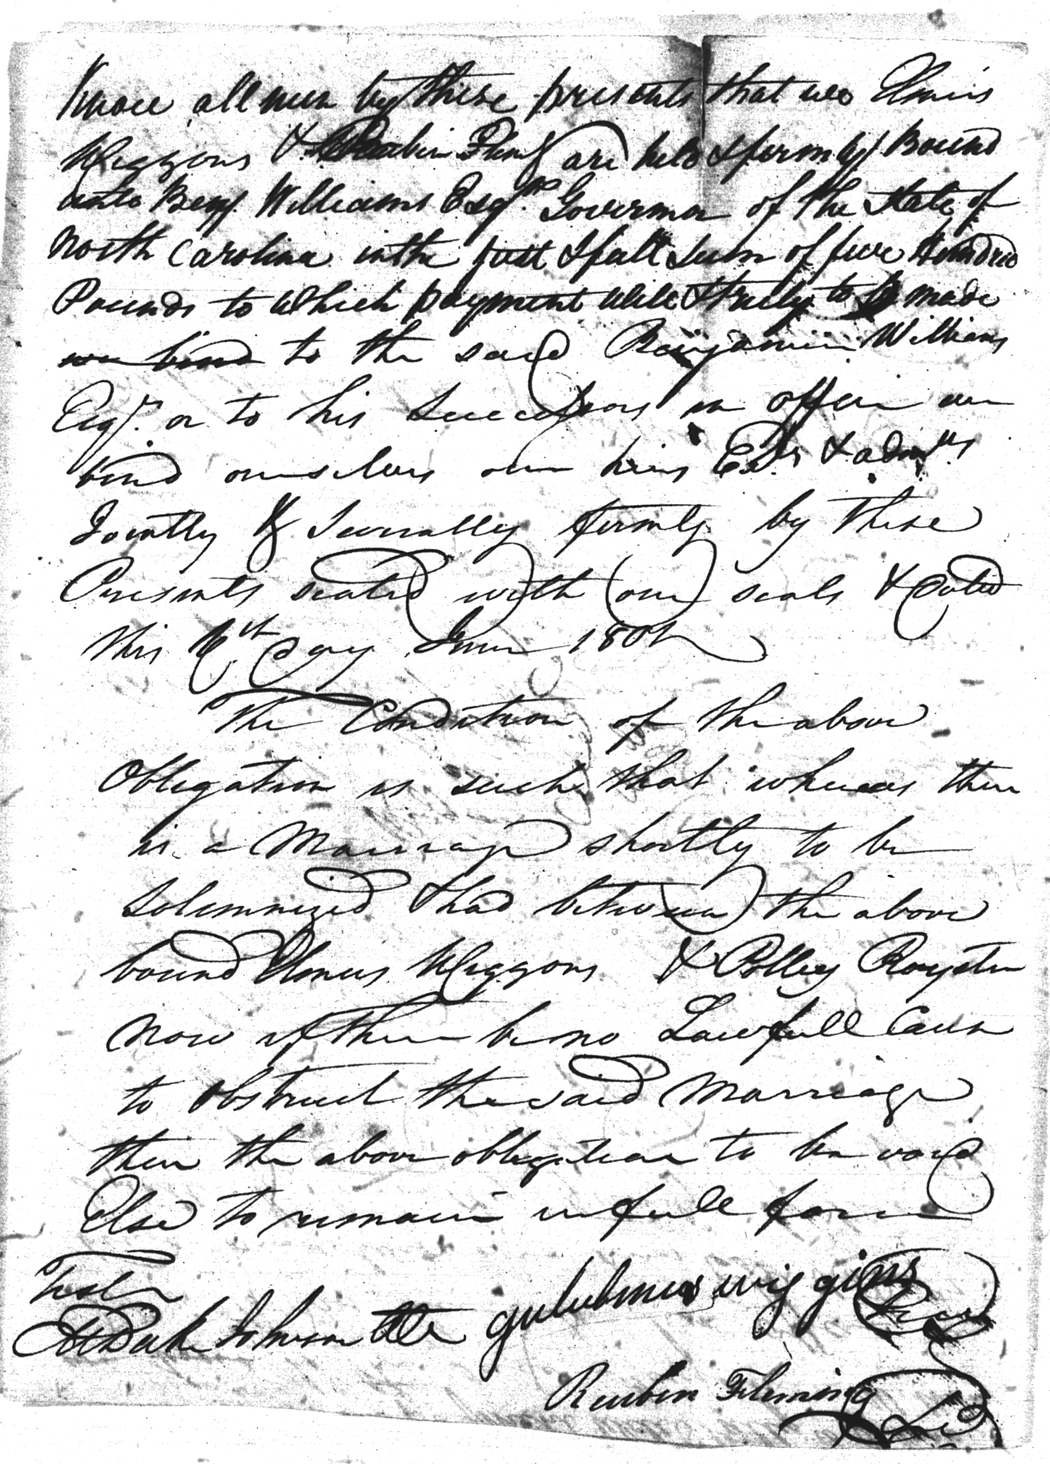 Know all men by these presents that we Elmus
Wiggons & Reubin Flem are held & firmly Bound
unto Benj. Williams Esqr. Governor of the State of
North Carolina in the just & full sum of five Hundred
Pounds to which payment well & truly to be made
we bind to the said Benjamin Williams
Esqr. or to his Successors in office we
bind ourselves our heirs Exrs & admrs
Jointly & Severally firmly by these
Presents sealed with our seals & dated
this day June 180
The Condition of the above
Obligation is such that whereas there
is a Marriage shortly to be
Solemnized & had between the above
bound Elmus Wiggons & Polley Royster
Now if there be no Lawfull Cause
to obstruct the said Marriage
then the above obligation to be void
Else to remain in full force
Teste
Johnson gulielmus wiggins
Reuben Fleming